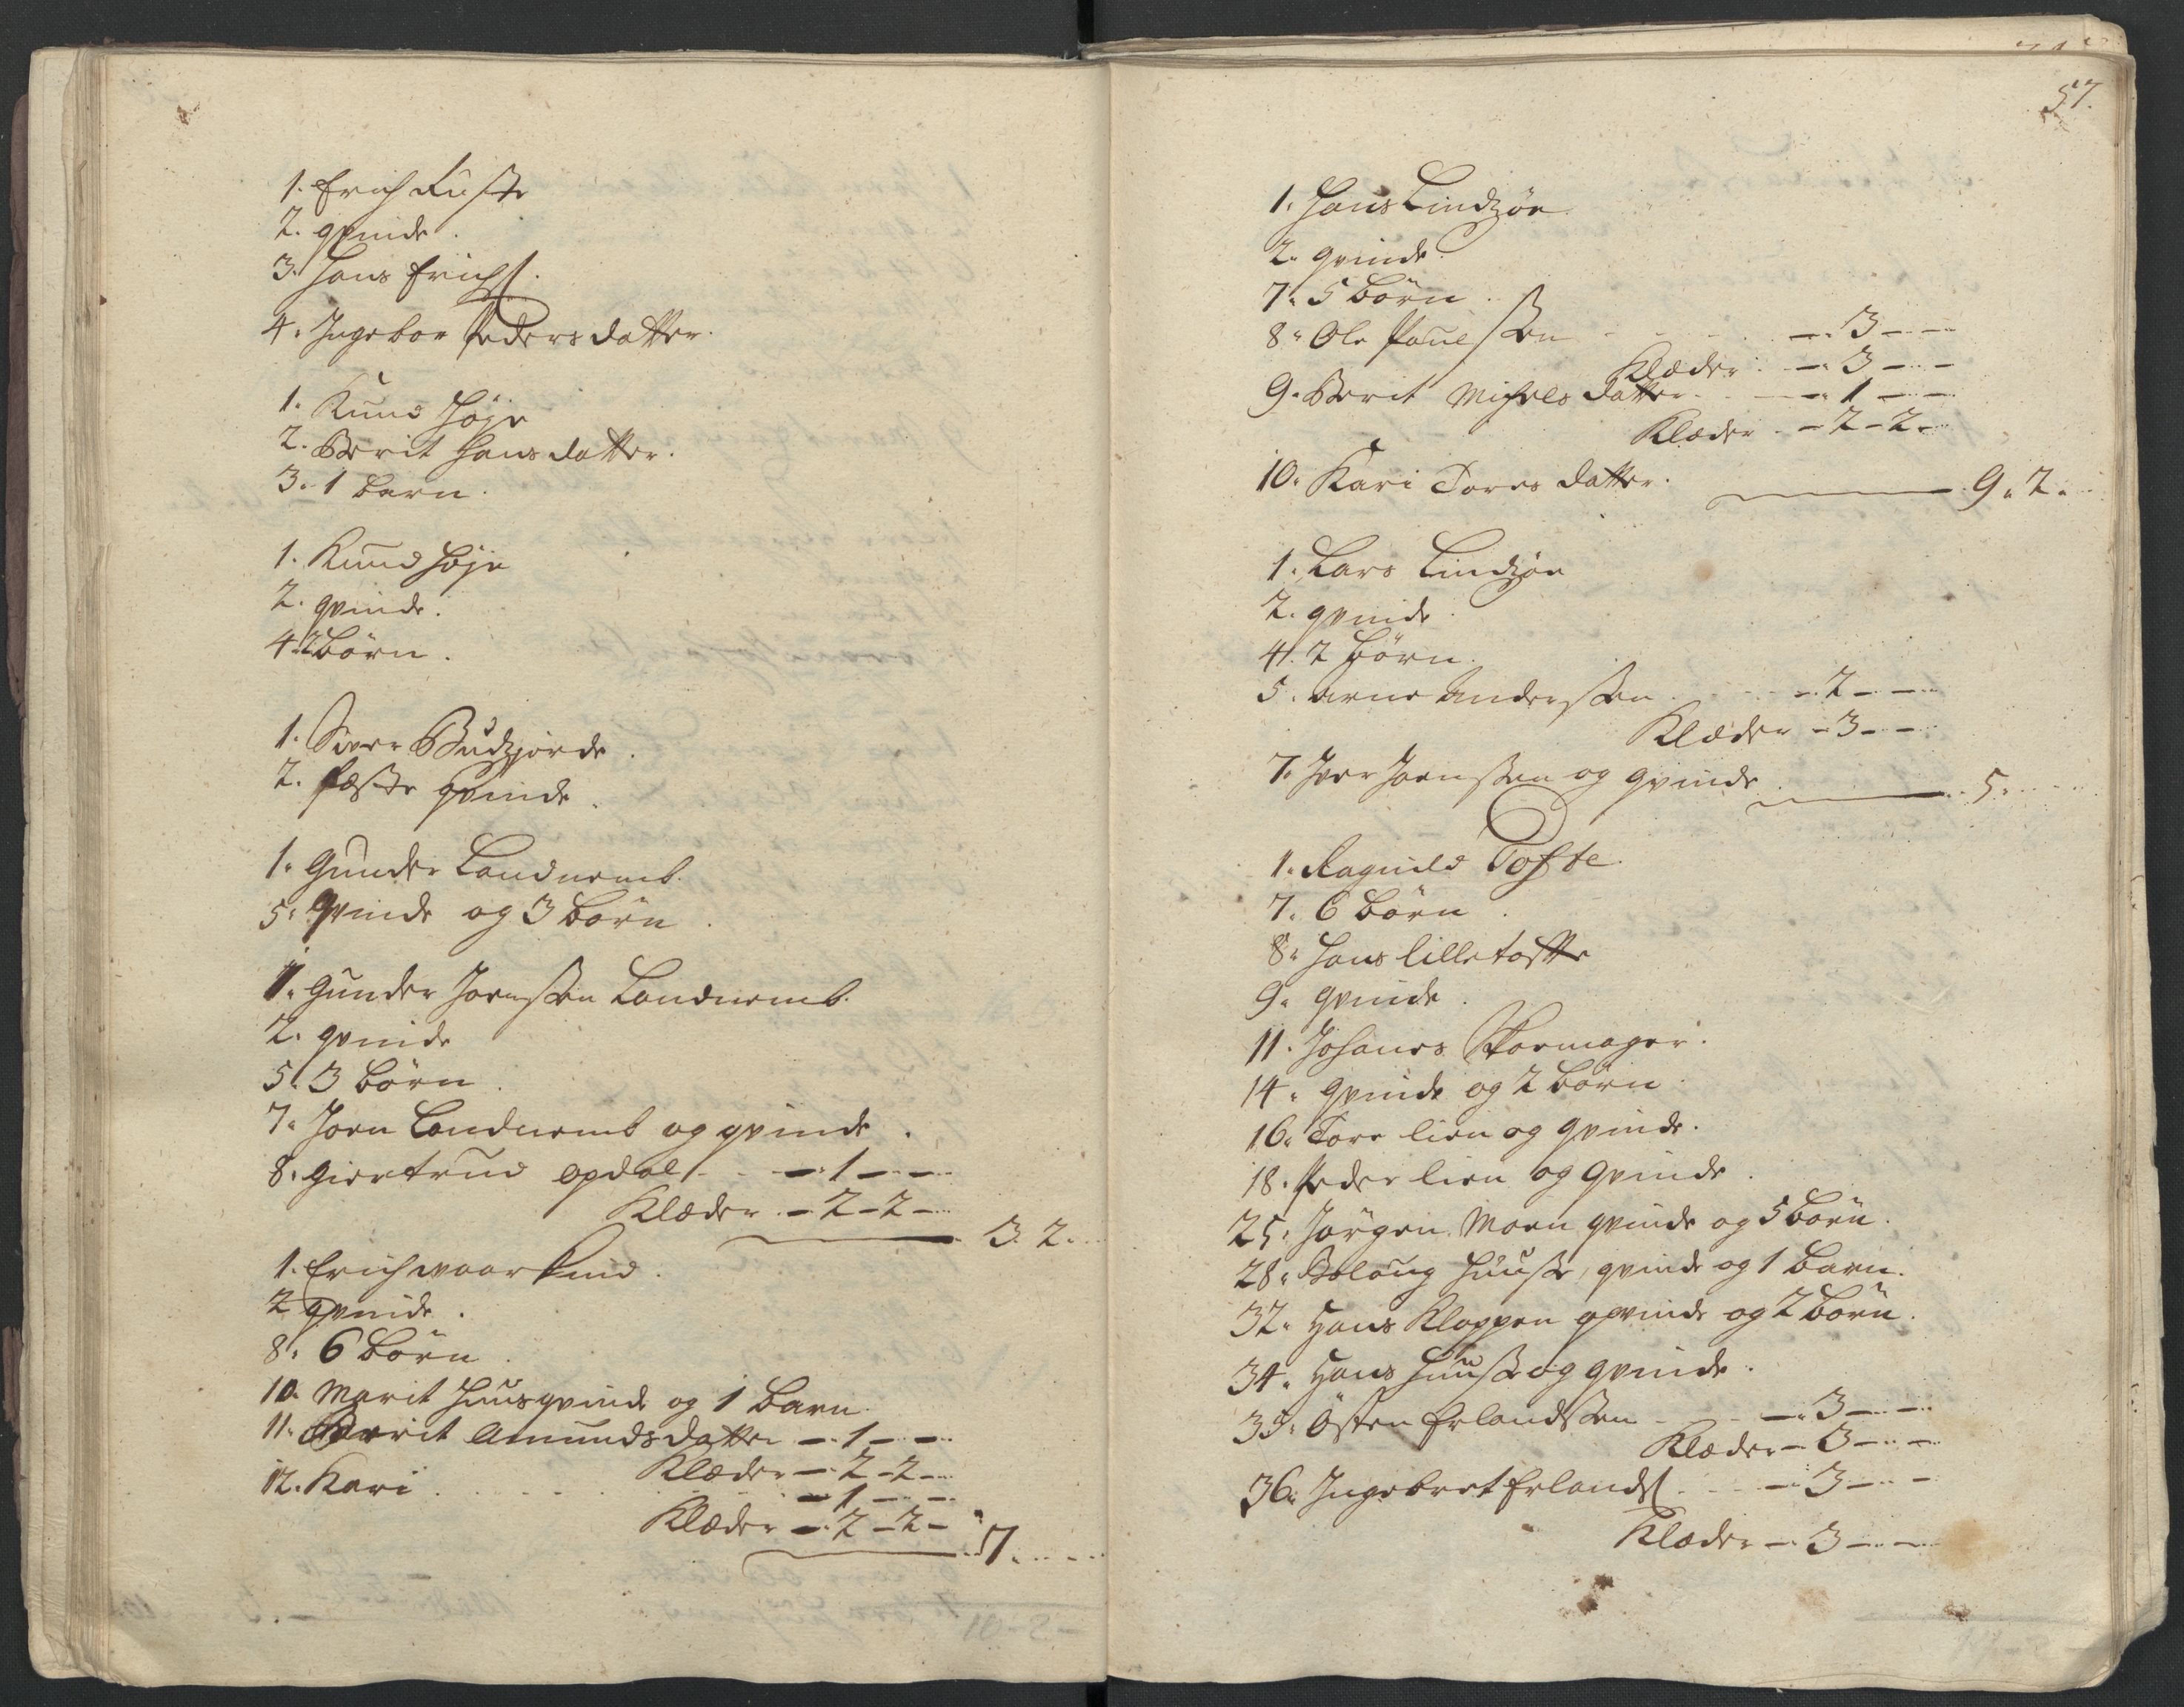 1. Erich Ruste
2. qvinde.
3. Hans Erichs.
4. Ingebor Pedersdatter.
1. Knud Höje
2. Berit Hansdatter.
3. 1 barn.
1. Knud Höje
2. qvinde.
4. 2 börn.
1. Siver Budzjorde.
2. Føste qvinde.
1. Gunder Landnemb.
5. Qvinde og 3 börn.
1. Gunder Joensen Landnemb.
2. qvinde
5. 3 börn.
7. Joen Landnemb og qvinde.
8. Giertrud opdal - - 1 - -
Klæder - 2 - 2 -
3. 2.
1. Erich
2 qvinde.
8. 6 börn.
10. Marit huusqvinde og 1 barn.
11. Berrit Amundsdatter - 1 - -
Klæder - 2 - 2 -
12. Kari . - 1 - -
Klæder - 2 - 2 -
7. - -
57.
1. Hans Lindzöe
2. qvinde
7. 5 börn.
8. Ole Pouelsen - - 3 - -
Klæder - 3 - -
9. Berit Michelsdatter - - 1 - -
Klæder - 2 - 2 -
10. Kari Toresdatter.
9. 2.
1. Lars Lindzöe
2. qvinde.
4. 2 börn.
5. Arne Andersen - - 2 - -
Klæder - 3 - -
7. Iver Joensen og qvinde
5. - -
1. Ragnild Tofte.
7. 6 börn.
8. Hans lilletofte
9. qvinde.
11. Johanes Skoemager.
14. qvinde og 2 börn.
16. Tore lien og qvinde.
18. Peder lien og qvinde.
25. Jörgen Moen qvinde og 5 börn.
28. huuse, qvinde og 1 barn.
32. Hans Kloppen qvinde og 2 börn.
34. Hans huuse og qvinde.
35. Östen Erlandsen - - 3 - -
Klæder - 3 - -
36. Ingebret Erlands. - - 3 - -
Klæder - 3 - -